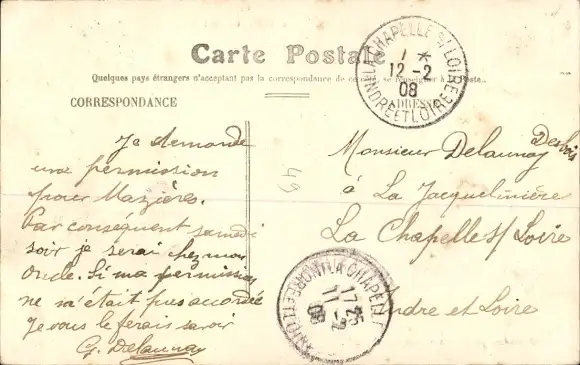 Carte Postale
Quelques pays étrangers n'acceptant pas la correspondance de ce côté, se renseigner à la Poste.
CORRESPONDANCE
ADRESSE
LA CHAPELLE S/ LOIRE
1 *
12 - 2
08
INDRE ET LOIRE
Je demande
une permission
pour Mazières.
Par conséquent samedi
soir je serai chez mon
oncle. Si ma permission
ne m'était pas accordée
Je vous le ferais savoir
G. Delaunay
49
Monsieur Delaunay Desbois
à La Jacquelinière
La Chapelle s/ Loire
Indre et Loire
LA CHAPELLE
17 25
11 - 2
08